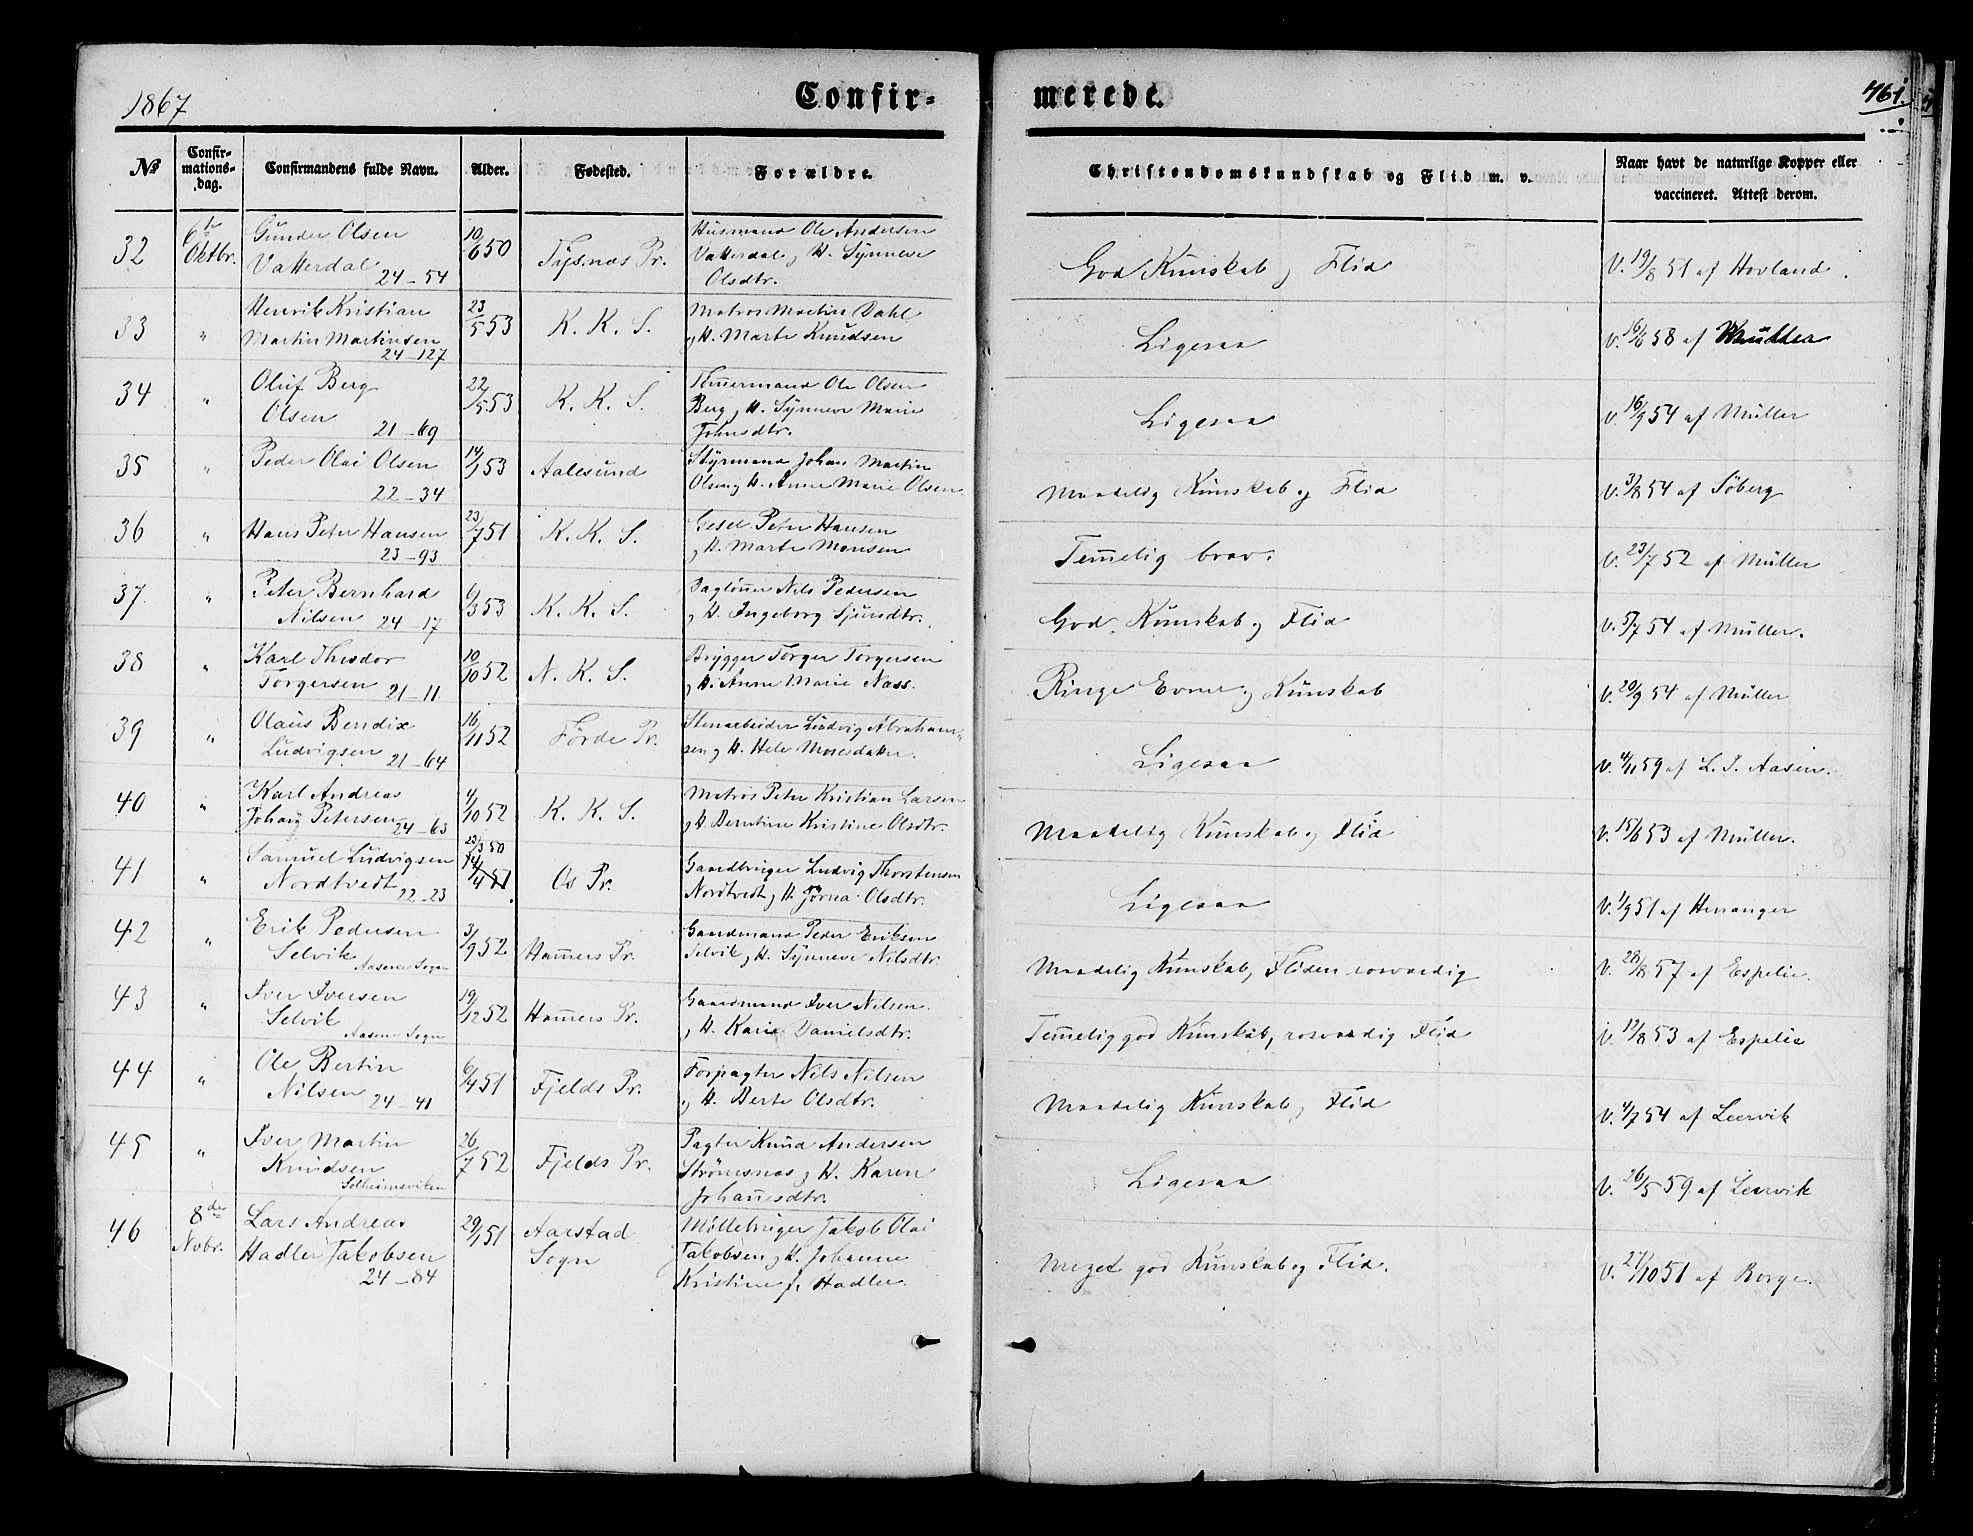 1867
Confir-
merede.
461.
No
Confir-
mations-
dag.
Confirmandens fulde Navn.
Alder.
Fødested.
Forældre.
Christendomskundskab og Flid m. v.
Naar havt de naturlige Kopper eller
vaccineret. Attest derom.
32
6te
Oktbr.
Gunder Olsen
Vatterdal
24-54
10/6 50
Tysnæs Pr.
Husmand Ole Andersen
Vatterdal og H. Synneve
Olsdtr.
God Kunskab og Flid
V. 19/8 51 af Hovland.
33
"
Henrik Kristian
Martin Martinsen
24-127
23/5 53
K. K. S.
Matros Martin Dahl
og H. Marte Knudsen
Ligesaa
V. 16/6 58 af
34
"
Oluf Berg
Olsen
21-69
22/5 53
K. K. S.
Tømermand Ole Olsen
Berg og H. Synneve Marie
Johnsdtr.
Ligesaa
V. 16/9 54 af Müller
35
"
Peder Olai Olsen
22-34
14/1 53
Aalesund
Styrmand Johan Martin
Olsen og H. Anne Marie Olsen
Maadelig Kunskab og Flid
V. 3/8 54 af Söberg
36
"
Hans Peter Hansen
23-93
23/7 51
K. K. S.
Gesel Peter Hansen
og H. Marte Monsen
Temelig brav.
V. 23/7 52 af Müller
37.
"
Peter Bernhard
Nilsen 24-17
6/3 53
K. K. S.
Dagløner Nils Pedersen
og H. Ingeborg Sjursdtr.
God Kunskab og Flid
V. 5/7 54 af Müller.
38
"
Karl Theodor
Torgersen 21-11
10/10 52
N. K. S.
Brygger Torger Torgersen
og H. Anne Marie Næss.
Ringe Evner og Kunskab
V. 20/9 54 af Müller
39
"
Olaus Bendix
Ludvigsen 21-64
16/11 52
Førde Pr.
Stenarbeider Ludvig Abraham-
sen og H. Hele Mosesdatter.
Ligesaa
V. 4/11 59 af L. J. Aasen.
40
"
Karl Andreas
Johan Petersen 24-63
4/10 52
K. K. S.
Matros Peter Kristian Larsen
og H Berntine Kristine Olsdtr.
Maadelig Kunskab og Flid
V. 15/6 53 af Müller.
41
"
Samuel Ludvigsen
Nordtvedt 22-23
23/3 50
14/4 51
Os Pr.
Gaardbruger Ludvig Thorstensen
Nordtvedt og H. Jørna Olsdtr.
Ligesaa
V. 1/9 51 af Heranger
42
"
Erik Pedersen
Selvik
Aasene Sogn
3/9 52
Hamers Pr.
Gaardmand Peder Eriksen
Selvik og H. Synneve Nilsdtr
Maadelig Kunskab, Fliden rosværdig
V. 28/8 57 af Espelie.
43
"
Iver Iversen
Selvik
Aasene Sogn
19/12 52
Hamers Pr.
Gaardmand Iver Nilsen
og H. Kari Danielsdtr.
Temelig god Kunskab, rosværdig Flid
V. 12/8 53 af Espelie
44
"
Ole Bertin
Nilsen 24-41
6/4 51
Fjelds Pr.
Forpagter Nils Nilsen
og H. Berte Olsdtr.
Maadelig Kunskab og Flid
V. 4/7 54 af Leervik
45
"
Iver Martin
Knudsen
Solheimsviken
26/7 52
Fjelds Pr.
Pagter Knud Andersen
Strømsnæs og H. Karen
Johanesdtr.
Ligesaa
V. 26/5 59 af Leervik
46
8de
Novbr.
Lars Andreas
Hadler Jakobsen
24-84
29/1 51
Aarstad
Sogn
Møllebruger Jakob Olai
Jakobsen og H. Johanne
Kristine f. Hadler.
Meget god Kunskab og Flid.
V. 27/10 51 af Borge.